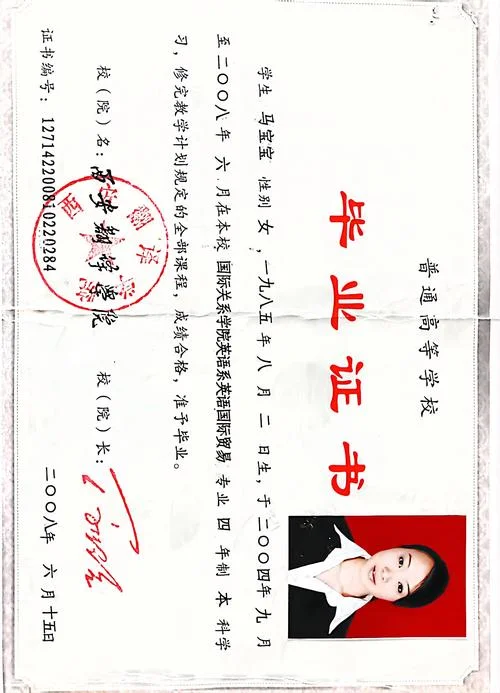 普通高等学校
毕业证书
学生 马宝宝 性别 女 ，一九八五年 八 月 二 日生，于二〇〇四年 九 月
至二〇〇八年 六 月在本校 国际关系学院英语系英语国际贸易 专业 四 年制 本 科学
习，修完教学计划规定的全部课程，成绩合格，准予毕业。
校（院）名：西安翻译学院 校（院）长：
证书编号：127142200810220284 二〇〇八年 六 月十五日